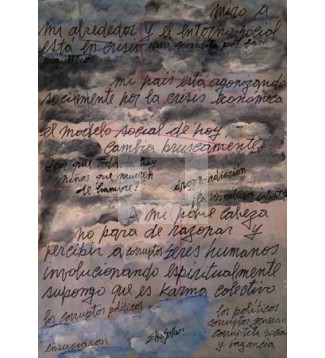 miro a
mi alrededor y el entorno social
esta en crisis
mi pais esta agonizando
socialmente por la crisis economica
el modelo social de hoy,
cambia bruscamente.
por que todo hay
niños que mueren
de hambre!
droga-adiccion
la desnutricion infantil
A mi pobre cabeza
no para de razonar y
percibir a corruptos seres humanos
involucionando espiritualmente
supongo que es karma colectivo
los corruptos politicos
los politicos
corruptos generan
y vagancia
ensuciaron